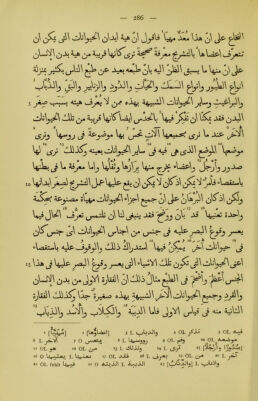 — 286 —
النخاع على انّ هذا معدّ مهيّأ فاقول ان هيئة ابدان الحيوانات التى يمكن ان
نتعرف اعضاءها بالتشريح معرفة صحيحة نرى كانها قريبة من هيئة بدن الانسان
على انّ منها ما يسبق الظنّ اليه بانّ طبعه بعيد عن طبع الناس بكثير بمنزلة
انواع الطيور وانواع السمك والحيّات والدود والزنابير والنبق والذباب
والبراغيث وساير الحيوانات الشبيهة بهذه ممن لا يعرف هيئته بسبب صغر
البدن فقد يمكنا ان نفكر فيها بالحدس ايضا كانها قريبة من تلك الحيوانات
الأخر عند ما نرى بجميعها آلات تحسّ بها موضوعة فى روسها ونرى
موضعها الموضع الذى هى فيه فى ساير الحيوانات بعينه وكذلك نرى لها
صدور وارجل واعضاء يخرج منها برازها وثفلها واما معرفة ما فى بطنها
باستقصاء فلمّا لا يمكن اذ كان لا يمكن ان يبلغ عليها عمل التشريح لصغر ابدانها
ولكن اذ كان البرهان على انّ جميع اجزاء الحيوانات مهيّأة مصنوعة بحكمة
واحدة تعنيها قد بان ووضح فقد ينبغى لنا ان نلتمس تعرف الحال فيما
يعسر وقوع البصر عليه فى جنس من اجناس الحيوانات التى تكون
فى حيوانات أخر يمكن فيها استدراك ذلك والوقوف عليه باستقصاء
اعنى الحيوانات التى تكون تلك الاشياء التى يعسر وقوع البصر عليها فى هذا
الجنس أعظم وأضخم فى الطبع مثال ذلك انّ الفقارة الاولى من بدن الانسان
والقرد وجميع الحيوانات الأخر الشبيهة بهذه صغيرة جدّا وكذلك الفقارة
الثانية ليس فى قياس الاولى فاما الدببة والكلاب والأسد والذياب